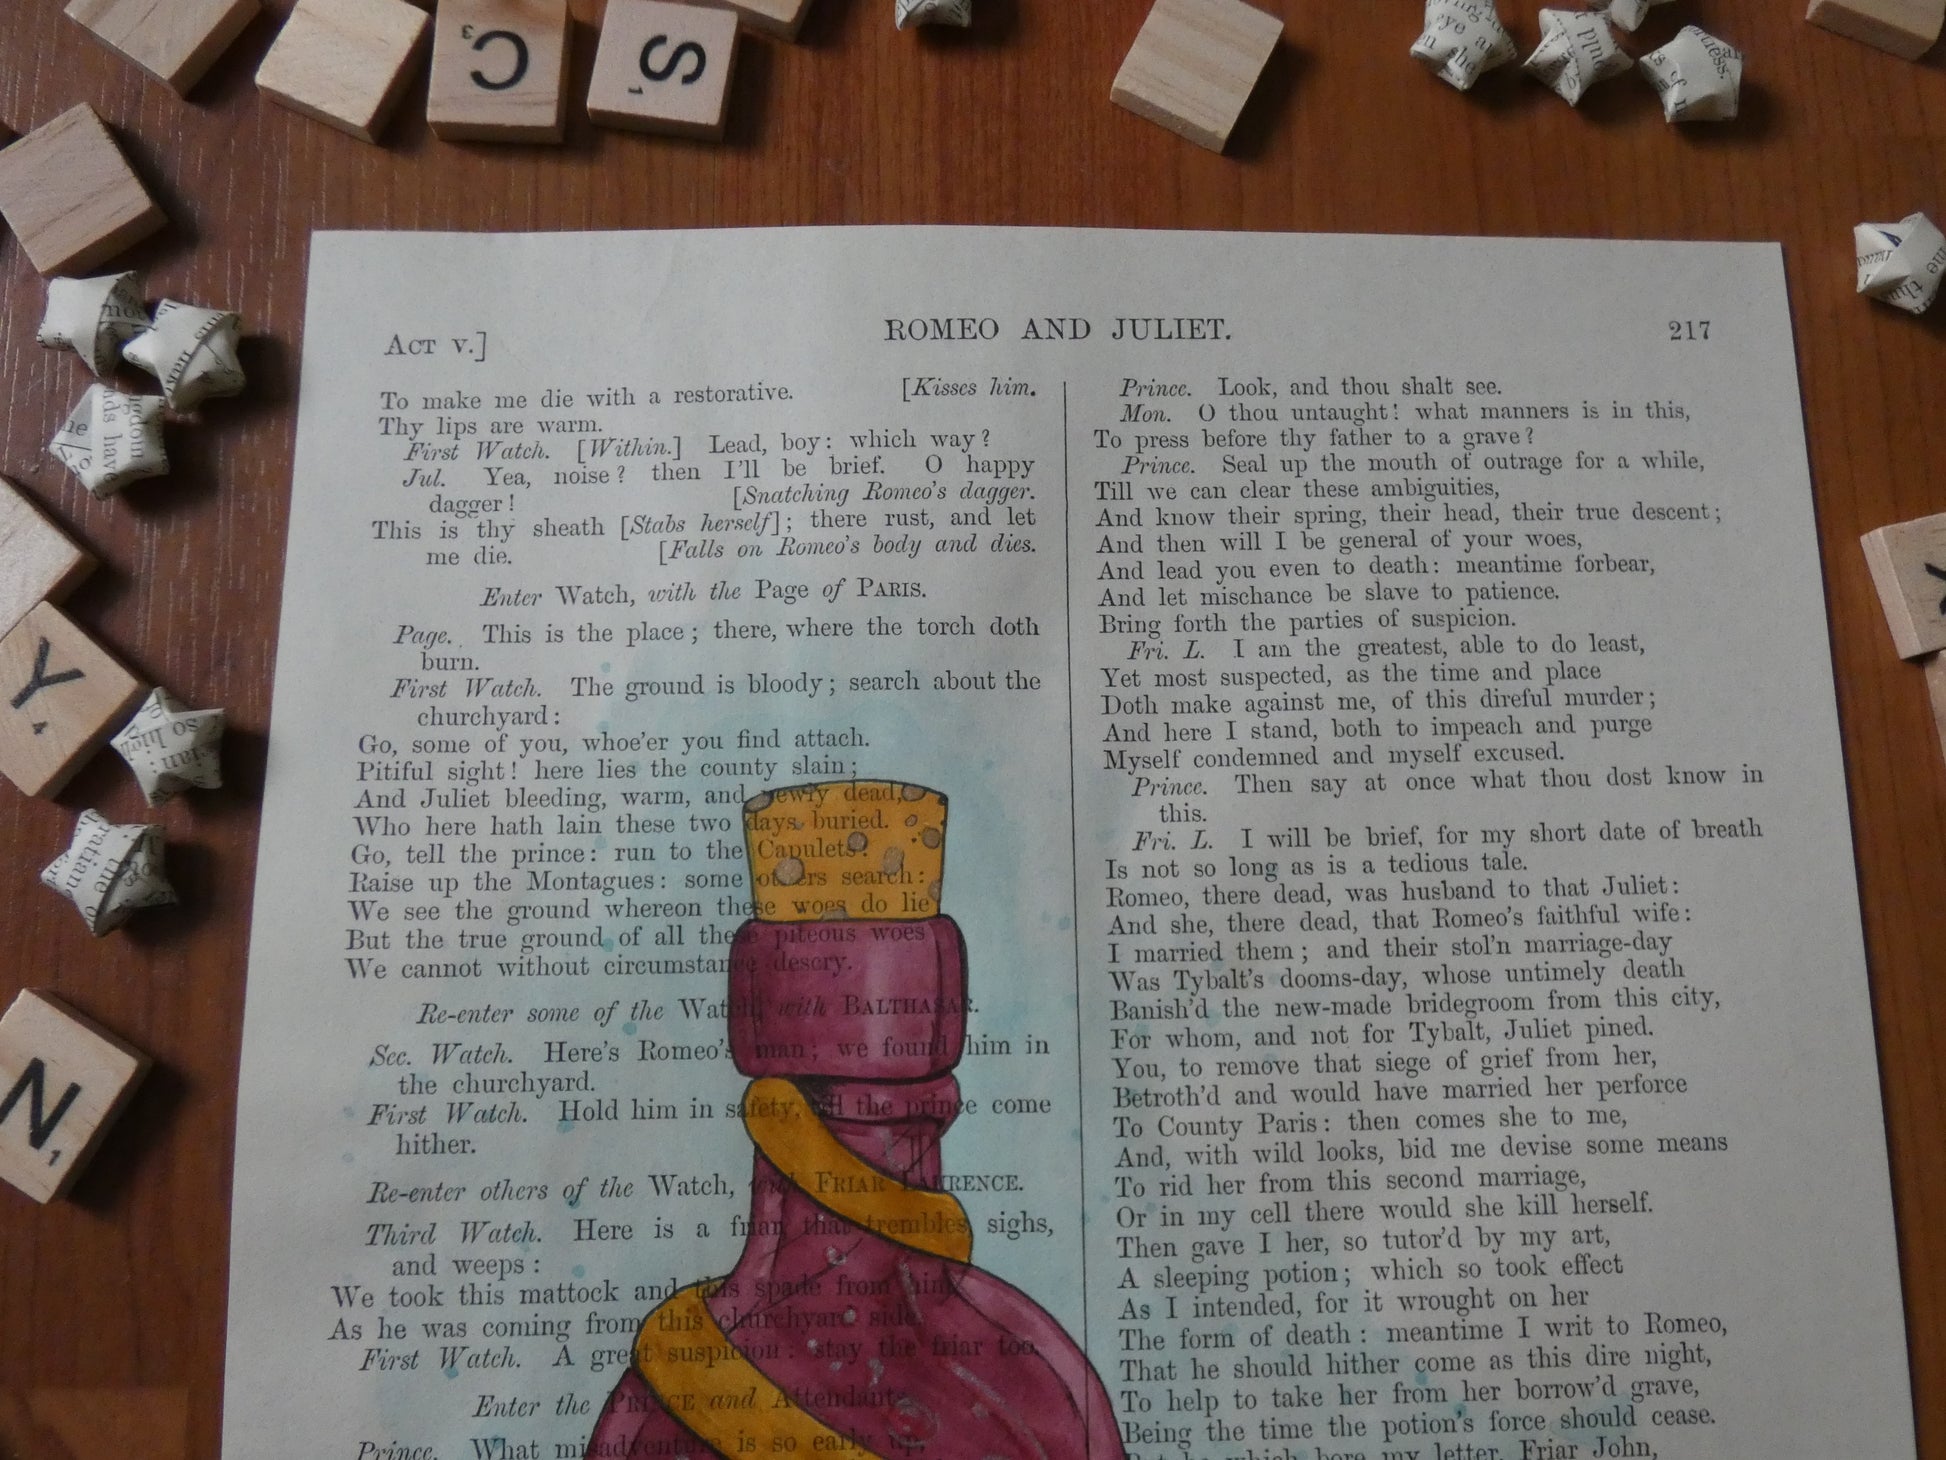 C3
S1
ACT V.]
ROMEO AND JULIET.
217
To make me die with a restorative. [Kisses him.
Thy lips are warm.
First Watch. [Within.] Lead, boy: which way?
Jul. Yea, noise? then I'll be brief. O happy
dagger! [Snatching Romeo's dagger.
This is thy sheath [Stabs herself]; there rust, and let
me die. [Falls on Romeo's body and dies.
Enter Watch, with the Page of PARIS.
Page. This is the place; there, where the torch doth
burn.
First Watch. The ground is bloody; search about the
churchyard:
Go, some of you, whoe'er you find attach.
Pitiful sight! here lies the county slain;
And Juliet bleeding, warm, and newly dead,
Who here hath lain these two days buried.
Go, tell the prince: run to the Capulets:
Raise up the Montagues: some others search:
We see the ground whereon these woes do lie
But the true ground of all these piteous woes
We cannot without circumstance descry.
Re-enter some of the Watch, with BALTHASAR.
Sec. Watch. Here's Romeo's man; we found him in
the churchyard.
First Watch. Hold him in safety, till the prince come
hither.
Re-enter others of the Watch, with FRIAR LAURENCE.
Third Watch. Here is a friar, that trembles, sighs,
and weeps:
We took this mattock and this spade from him,
As he was coming from this churchyard side.
First Watch. A great suspicion: stay the friar too.
Enter the PRINCE and Attendants.
Prince. What misadventure is so early up,
Prince. Look, and thou shalt see.
Mon. O thou untaught! what manners is in this,
To press before thy father to a grave?
Prince. Seal up the mouth of outrage for a while,
Till we can clear these ambiguities,
And know their spring, their head, their true descent;
And then will I be general of your woes,
And lead you even to death: meantime forbear,
And let mischance be slave to patience.
Bring forth the parties of suspicion.
Fri. L. I am the greatest, able to do least,
Yet most suspected, as the time and place
Doth make against me, of this direful murder;
And here I stand, both to impeach and purge
Myself condemned and myself excused.
Prince. Then say at once what thou dost know in
this.
Fri. L. I will be brief, for my short date of breath
Is not so long as is a tedious tale.
Romeo, there dead, was husband to that Juliet:
And she, there dead, that Romeo's faithful wife:
I married them; and their stol'n marriage-day
Was Tybalt's dooms-day, whose untimely death
Banish'd the new-made bridegroom from this city,
For whom, and not for Tybalt, Juliet pined.
You, to remove that siege of grief from her,
Betroth'd and would have married her perforce
To County Paris: then comes she to me,
And, with wild looks, bid me devise some means
To rid her from this second marriage,
Or in my cell there would she kill herself.
Then gave I her, so tutor'd by my art,
A sleeping potion; which so took effect
As I intended, for it wrought on her
The form of death: meantime I writ to Romeo,
That he should hither come as this dire night,
To help to take her from her borrow'd grave,
Being the time the potion's force should cease.
But he which bore my letter, Friar John,
Y4
N1